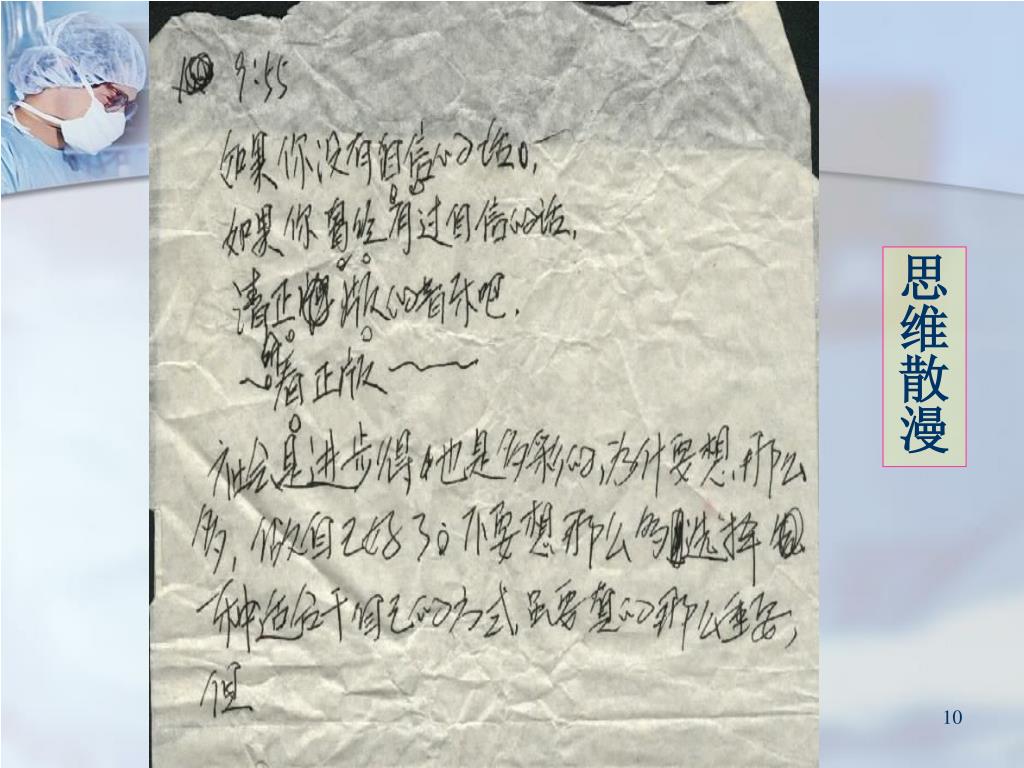 9:55
如果你没有自信的话。,
如果你曾经有过自信的话,
请正版的看你吧.
看正版
社会是进步得,也是多彩的,为什要想那么
多,做自己好了。不要想那么多选择
一种适合于自己的方式,重要真的那么重要,
但
思维散漫
10